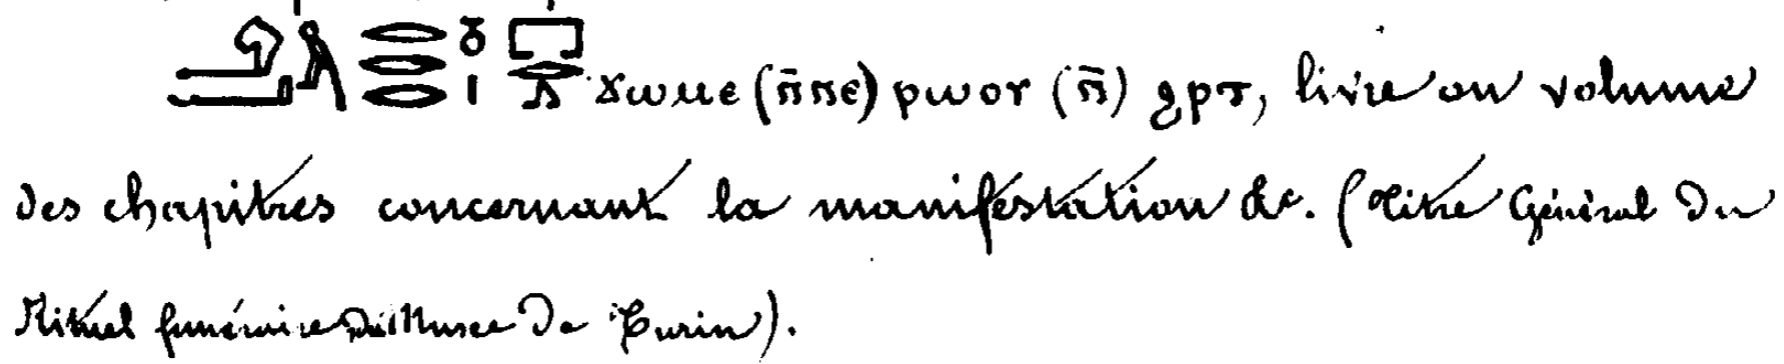 ϫⲱⲙⲉ (ⲛ̄ⲛⲉ) ⲣⲱⲟⲩ (ⲛ̄) ϩⲣⲧ, livre ou volume
des chapitres concernant la manifestation &c. (Titre Général du
Rituel funéraire du Musée de Turin).